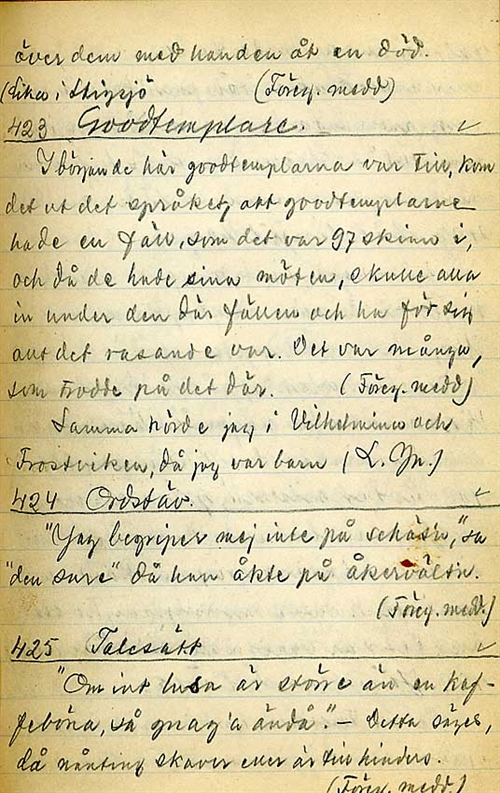 över dem med handen åt en död.
(Lika i Stigsjö (Föreg. medd)
423 Goodtemplare.
I början de här goodtemplarna var till, kom
det ut det språket, att goodtemplarne
hade en fäll, som det var 97 skinn i,
och då de hade sina möten, skulle alla
in under den där fällen och ha för sig
allt det rasande var. Det var många,
som trodde på det där. (Föreg. medd)
Samma hörde jag i Vilhelmina och
Frostviken, då jag var barn (L. Jn.)
424 Ordstäv.
"Jag begriper mej inte på schäs'n," sa
"den sure" då han åkte på åkervält'n.
(Föreg. medd.)
425 Talesätt
"Om int lusa är större än en kaf-
feböna, så gnag'a ändå." – Detta säges,
då nånting skaver eller är till hinders.
(Föreg. medd.)